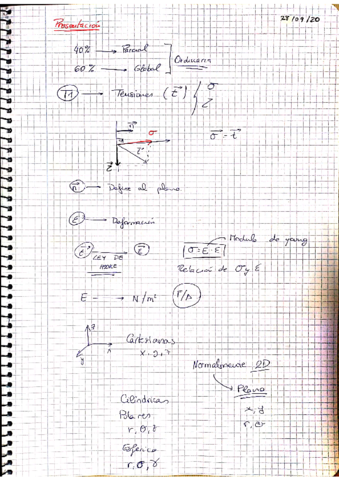 Presentación
28/09/20
40% → Parcial
60% → Global
Ordinaria
T1 → Tensiones (t⃗) { σ
τ
n⃗ σ
σ⃗ - t⃗
t⃗
τ⃗
n⃗ → Define al plano
ε → Deformación
LEY DE
HOOKE
σ = E·ε
Modulo de young
Relación de σ y ε
E → N/m²
Cartesianas
x, y, z
Normalmente 2D
Plano
x, y
r, θ
Cilíndricas
Polares
r, θ, z
Esférica